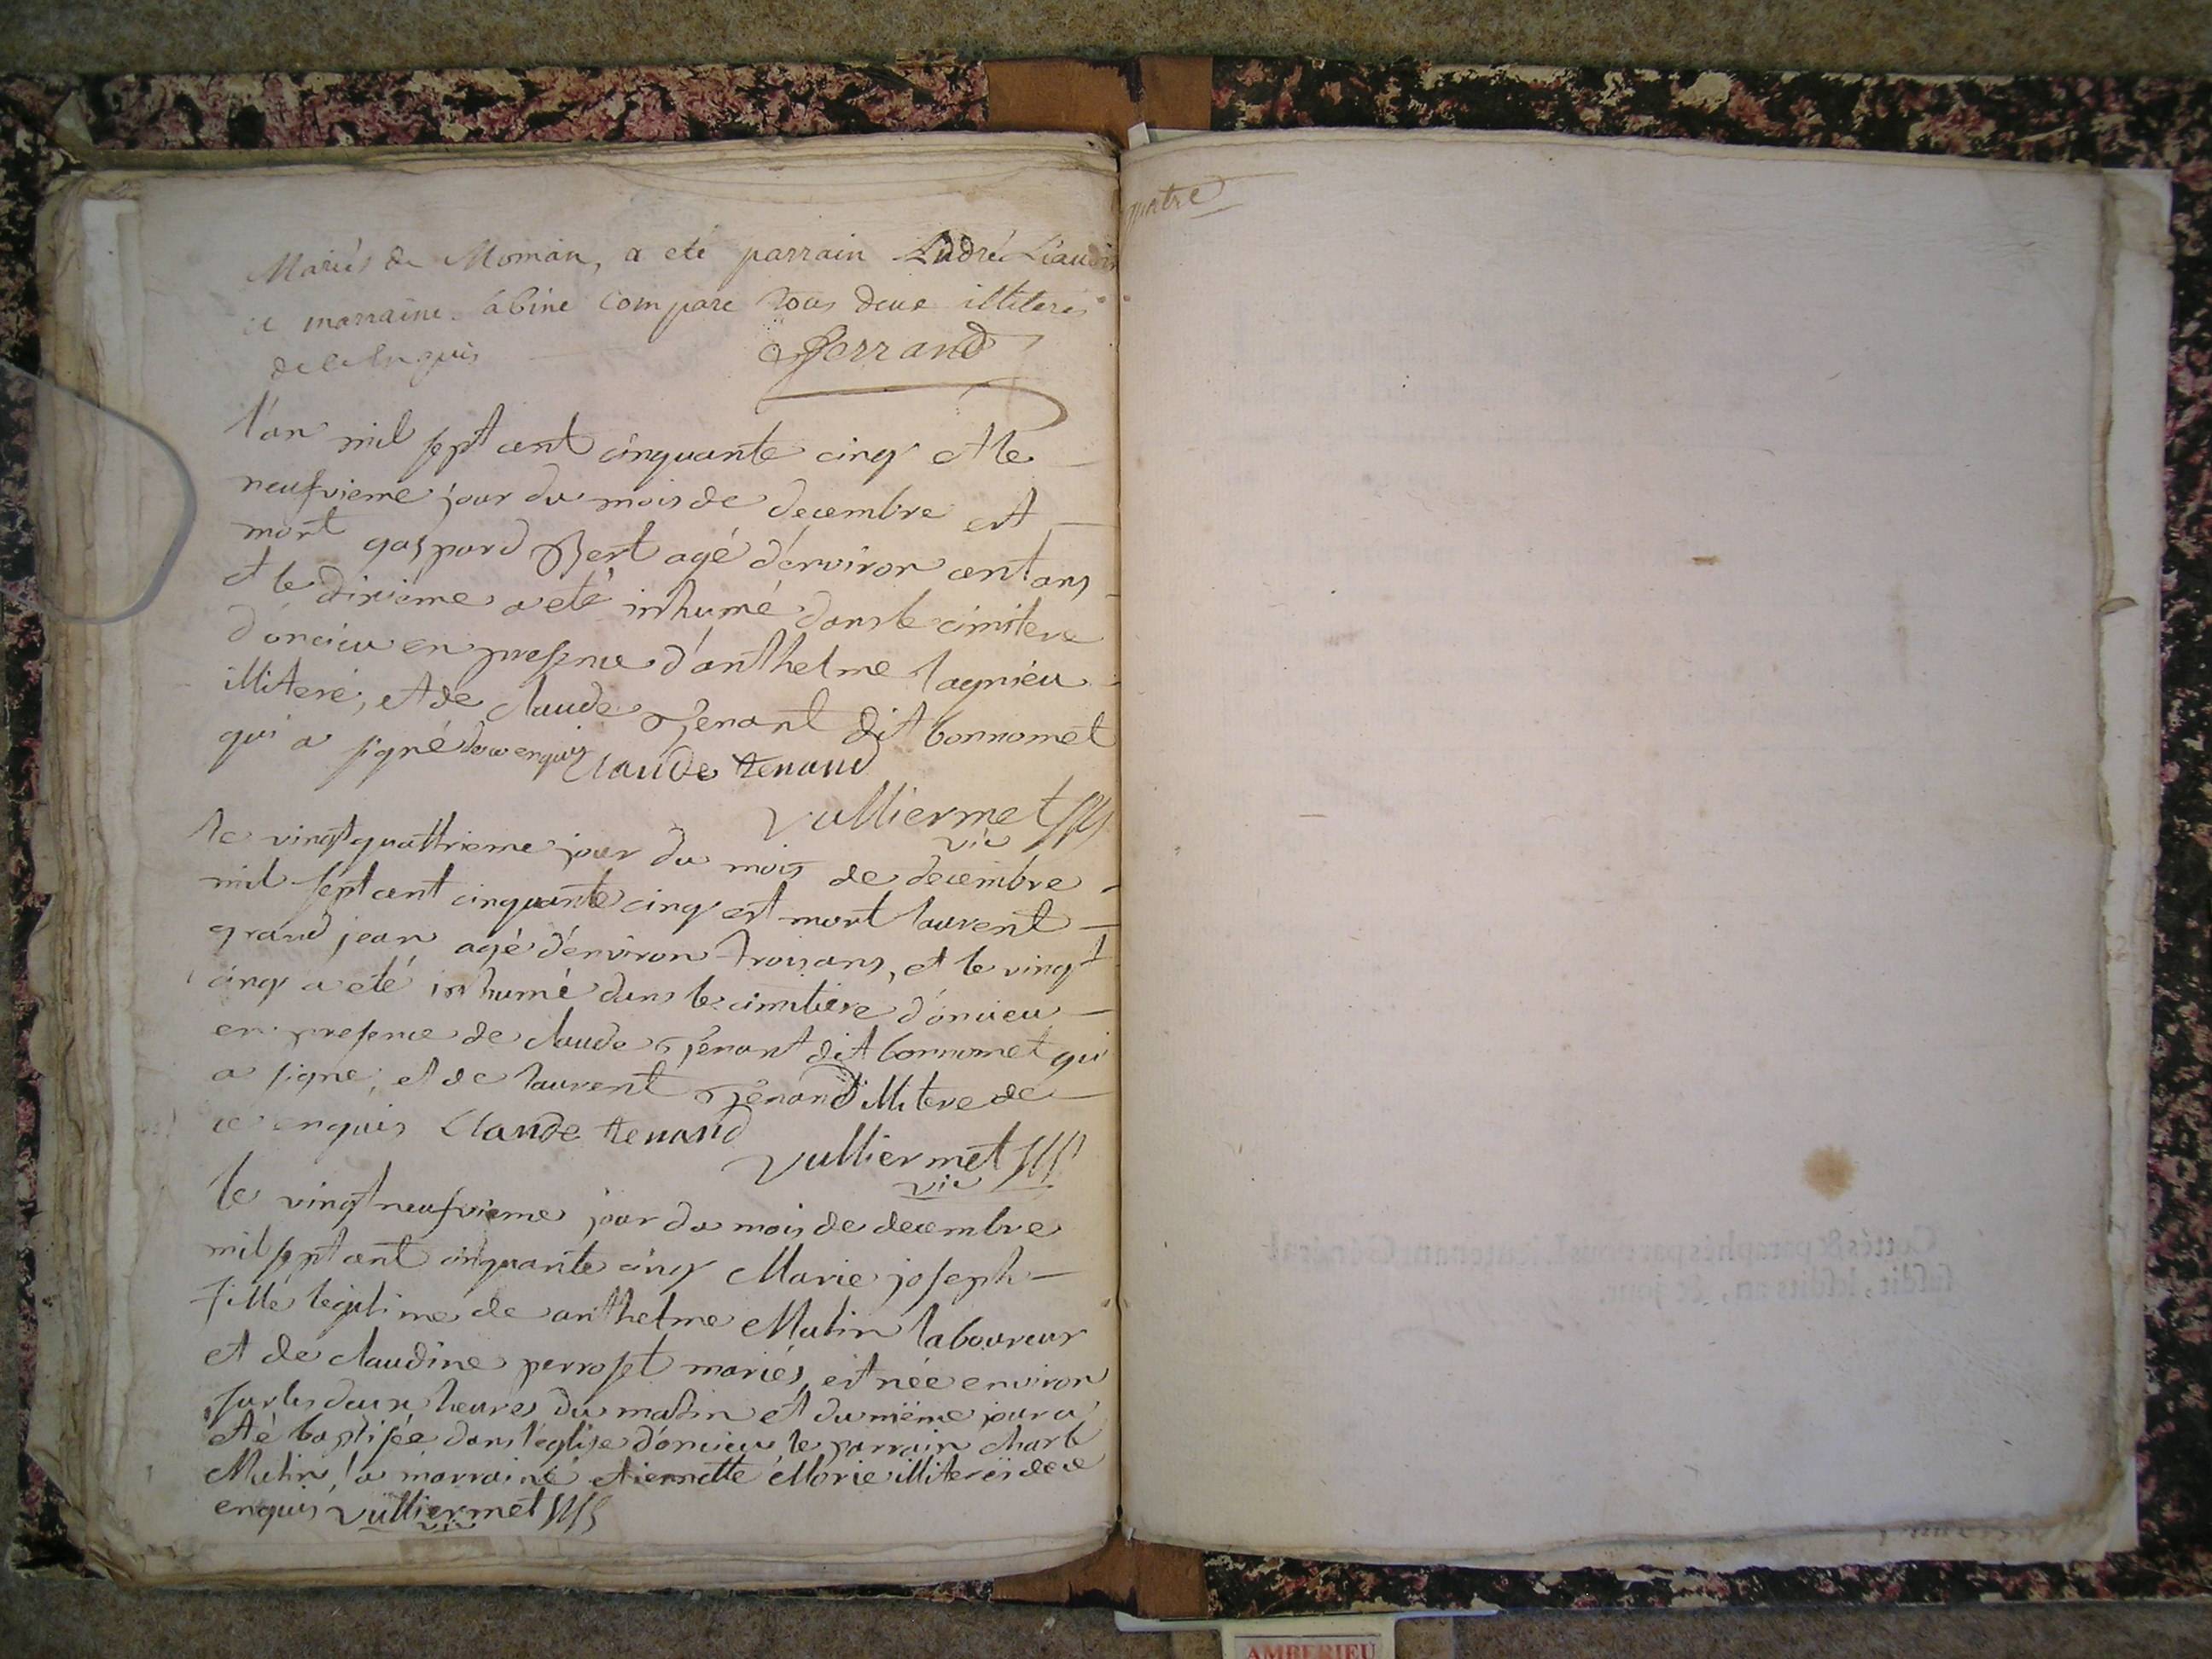 Mariés de Momain, a eté parrain André Liaudin
et marraine sabine Compare tous deux illiterés
de ce enquis Ferrand
l'an mil sept cent cinquante cinq et le
neufvieme jour du mois de decembre est
mort gaspard Bert agé d'environ cent ans
et le dixième a eté inhumé dans le cimitere
d'oncieu en presence d'anthelme lagnieu
illiteré, et de claude Tenant dit bonnomet
qui a signé de ce enquis Claude tenand
Vulliermet
vic
le vingt quattrieme jour du mois de decembre
mil sept cent cinquante cinq est mort laurent
grand jean agé d'environ trois ans, et le vingt
cinq a eté inhumé dans le cimitiere d'oncieu
en presence de claude Tenant dit bonnomet qui
a signé, et de laurent Tenand illiteré de
ce enquis Claude tenand
Vulliermet
vic
le vingt neufvieme jour du mois de decembre
mil sept cent cinquante cinq Marie joseph
fille legitime de anthelme Mutin laboureur
et de claudine perroset mariés, est née environ
sur les deux heures du matin et du même jour a
eté baptisée dans l'eglise d'oncieu le parrain charle
Mutin, la marraine etiennette Morie illiterés de ce
enquis Vulliermet
vic
Cottés & paraphés par nous Lieutenant Général
susdit, lesdits an, & jour.
AMBERIEU